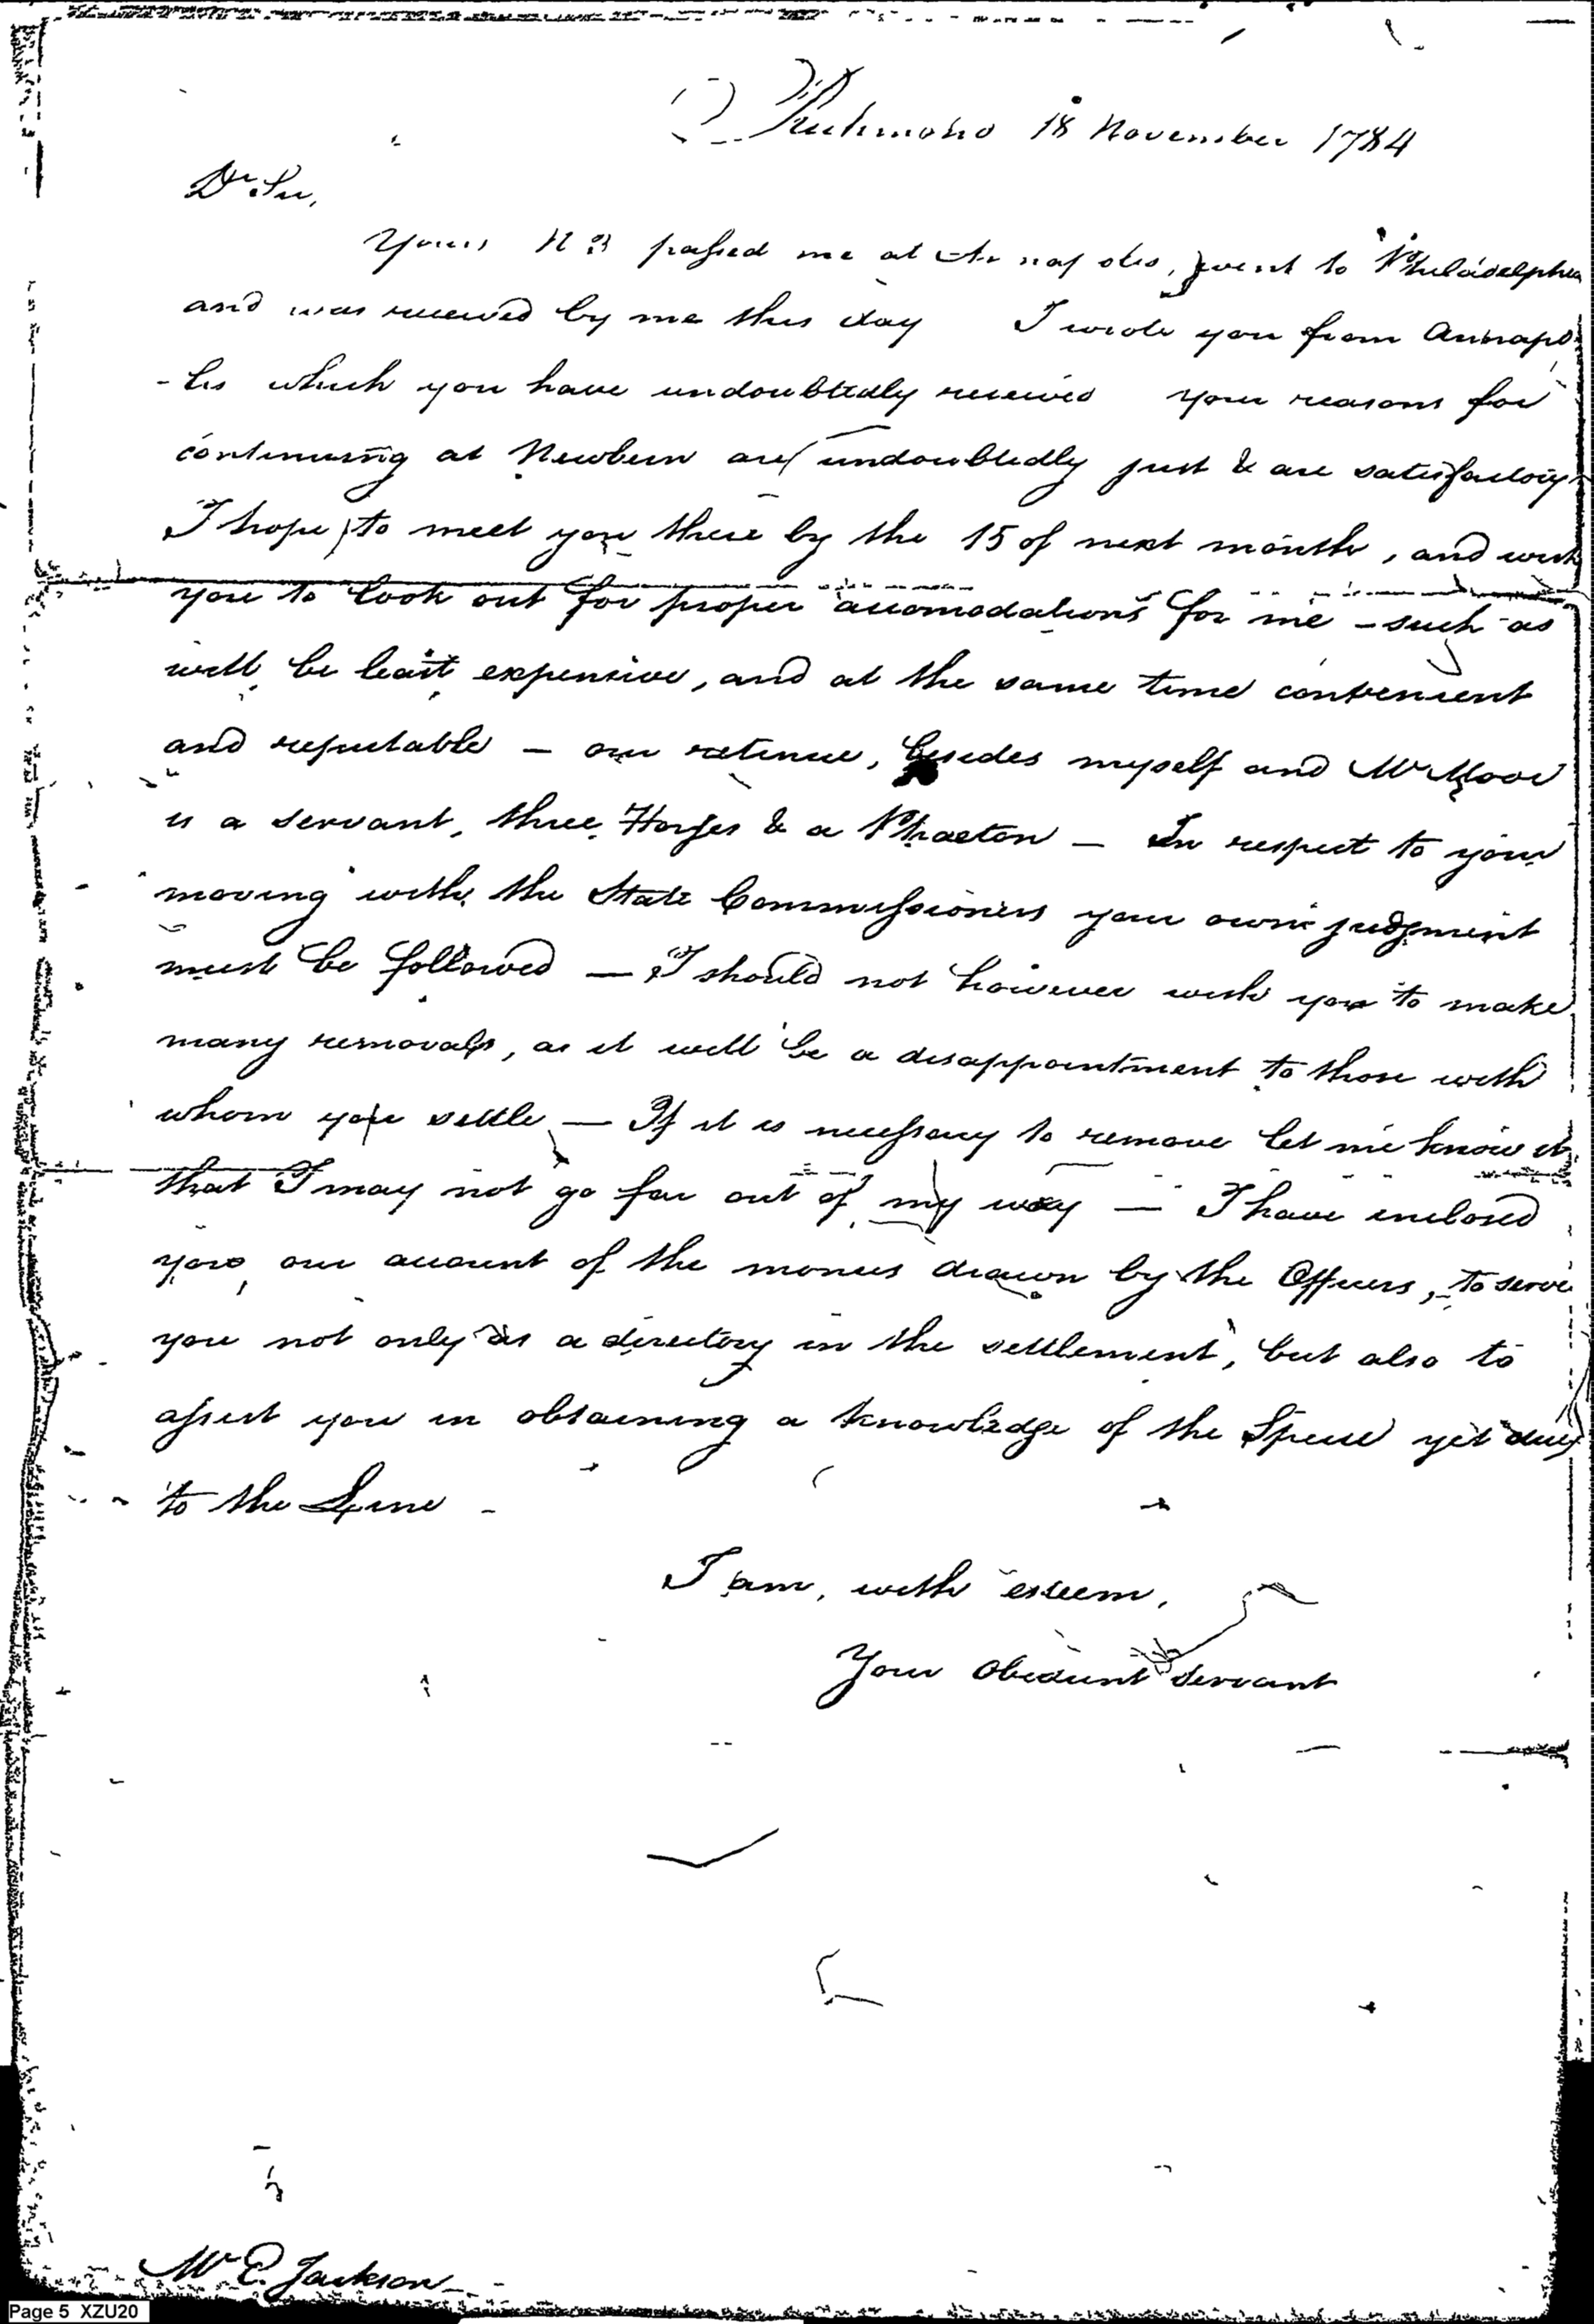 Richmond 18 November 1784
Dr Sir,
Yours N 3 passed me at Annapolis, went to Philadelphia
and was received by me this day I wrote you from Annapo
-lis which you have undoubtedly received your reasons for
continuing at Newbern are undoubtedly just & are satisfactory
I hope to meet you there by the 15 of next month, and wish
you to look out for proper accomodations for me - such as
will be least expensive, and at the same time convenient
and reputable — our retinue, besides myself and Mr Moor
is a servant, three Horses & a Phaeton — In respect to your
moving with the State Commissioners your own judgment
must be followed — I should not however wish you to make
many removals, as it will be a disappointment to those with
whom you settle — If it is necessary to remove let me know it
that I may not go far out of my way — I have inclosed
you our account of the monies drawn by the Officers, to serve
you not only as a directory in the settlement, but also to
assist you in obtaining a knowledge of the Specie yet due
to the Line -
I am, with esteem,
Your obedient servant
Mr E. Jackson
Page 5 XZU20